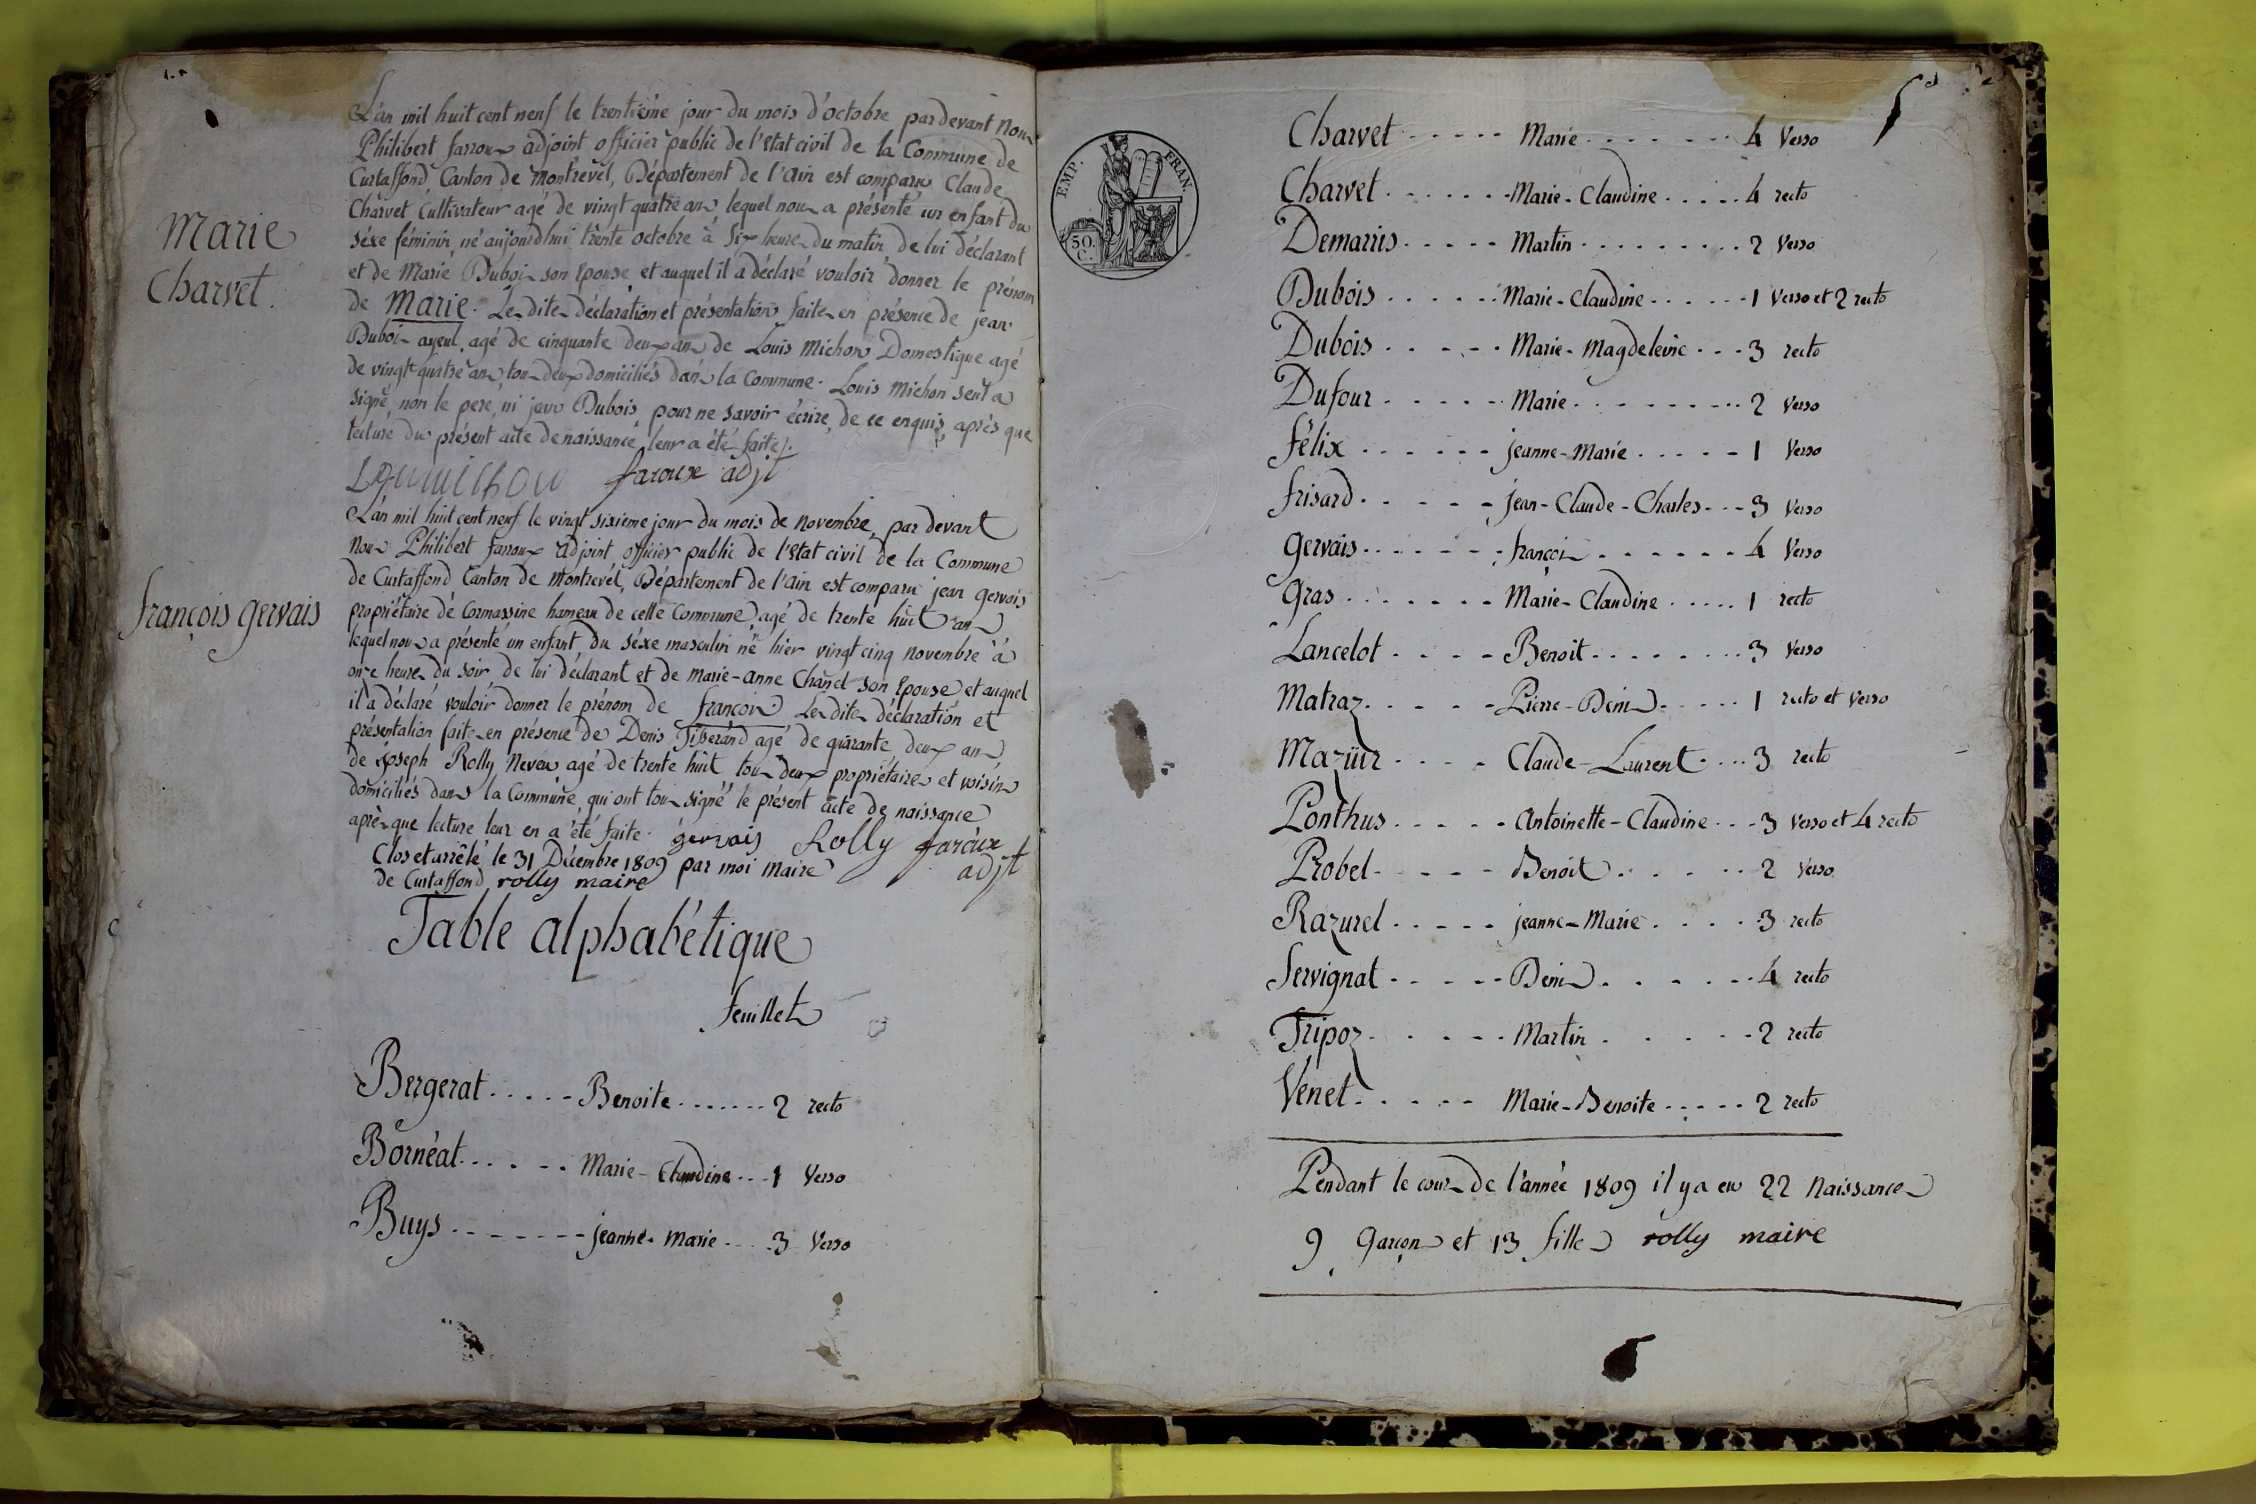 L'an mil huit cent neuf le trentième jour du mois d'octobre pardevant Nous
Philibert farroux adjoint officier public de l'etat civil de la Commune de
Curtaffond Canton de Montrevel, Département de l'ain est comparu Claude
Charvet Cultivateur agé de vingt quatre ans lequel nous a présenté un enfant du
séxe féminin né aujourdhui trente octobre à Six heures du matin de lui déclarant
et de Marie Dubois son Epouse et auquel il a déclaré vouloir donner le prénom
de Marie. Lesdites déclaration et présentation faites en présence de jean
Dubois ayeul agé de cinquante deux ans de Louis Michon Domestique agé
de vingt quatre ans tous deux domiciliés dans la Commune. Louis Michon seul a
signé non le pere, ni jean Dubois pour ne savoir écrire de ce enquis, après que
lecture du présent acte de naissance leur a été faite.
Marie
Charvet.
faroux adjt
L'an mil huit cent neuf le vingt sixieme jour du mois de Novembre, par devant
Nous Philibert farroux adjoint officier public de l'etat civil de la Commune
de Curtaffond Canton de Montrevel, Département de l'ain est comparu jean gervais
propriétaire de Cormassine hameau de cette Commune, agé de trente huit ans
lequel nous a présenté un enfant du séxe masculin né hier vingt cinq novembre à
onze heures du soir de lui déclarant et de Marie-anne Chanel son Epouse et auquel
il a déclaré vouloir donner le prénom de françois. Lesdites déclaration et
présentation faites en présence de Denis Tisserand agé de quarante deux ans
de joseph Rolly Neveu agé de trente huit tous deux propriétaires et voisins
domiciliés dans la Commune, qui ont tous signé le présent acte de naissance
après que lecture leur en a été faite. gervais Rolly faroux
adjt
françois gervais
Clos et arrêté le 31 Décembre 1809 par moi Maire
de Curtaffond rolly maire
Table alphabétique
feuillets
Bergerat ..... Benoite ....... 2 recto
Bornéat ...... Marie-Claudine ... 1 Verso
Buys ........ jeanne-Marie .... 3 Verso
EMP. FRAN.
50.
C.
Charvet ...... Marie ........ 4 Verso
Charvet ....... Marie-Claudine ..... 4 recto
Demarris ..... Martin ......... 2 Verso
Dubois ...... Marie-Claudine ...... 1 Verso et 2 recto
Dubois ..... Marie-Magdeleine ... 3 recto
Dufour ...... Marie ......... 2 Verso
félix ...... jeanne-Marie ..... 1 Verso
frisard ..... jean-Claude-Charles ... 3 Verso
gervais ....... françois ....... 4 Verso
gras ....... Marie-Claudine ..... 1 recto
Lancelot .... Benoit ........ 3 Verso
Matraz ..... Pierre-Denis ..... 1 recto et Verso
Mazüir .... Claude-Laurent .... 3 recto
Ponthus ..... Antoinette-Claudine ... 3 Verso et 4 recto
Probel ..... Benoit ..... 2 Verso
Razurel ..... jeanne-Marie .... 3 recto
Servignat ..... Denis ...... 4 recto
Tripoz ..... Martin ..... 2 recto
Venet ..... Marie-Benoite ..... 2 recto
Pendant le cours de l'année 1809 il y a eu 22 Naissances
9 garçons et 13 filles rolly maire